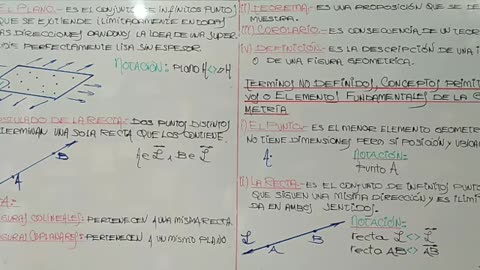 EL PLANO.- ES EL CONJUNTO DE INFINITOS PUNTOS
QUE SE EXTIENDE ILIMITADAMENTE EN TODAS
LAS DIRECCIONES DANDONOS LA IDEA DE UNA SUPER
PERFECTAMENTE LISA SIN ESPESOR
NOTACIÓN: PLANO H<>▱H
POSTULADO DE LA RECTA:- DOS PUNTOS DISTINTOS
DETERMINAN UNA SOLA RECTA QUE LOS CONTIENE.
A ∈ L, B ∈ L
B
A
FIGURAS COLINEALES: PERTENECEN A UNA MISMA RECTA
FIGURAS COPLANARES: PERTENECEN A UN MISMO PLANO
II) TEOREMA:- ES UNA PROPOSICIÓN QUE SE DE
MUESTRA.
III) COROLARIO:- ES CONSECUENCIA DE UN TEORE
IV) DEFINICIÓN:- ES LA DESCRIPCIÓN DE UNA I
O DE UNA FIGURA GEOMETRICA.
TERMINOS NO DEFINIDOS, CONCEPTOS PRIMITI
VOS O ELEMENTOS FUNDAMENTALES DE LA G
METRÍA
I) EL PUNTO:- ES EL MENOR ELEMENTO GEOMETR
NO TIENE DIMENSIONES PERO SI POSICIÓN Y UBICA
A· NOTACIÓN:-
PUNTO A
II) LA RECTA:- ES EL CONJUNTO DE INFINITOS PUNTO
QUE SIGUEN UNA MISMA DIRECCIÓN Y ES ILIMITA
DA EN AMBOS SENTIDOS.
NOTACIÓN:-
L A B recta L<> L
recta AB<> AB